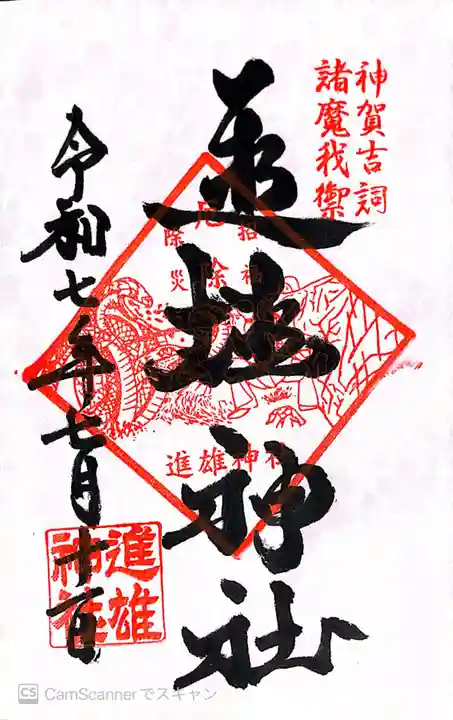 神賀吉詞
諸魔我禦
神社
招福
厄除
除災
進雄神社
令和七年七月十一日
進雄
神社
CS CamScannerでスキャン